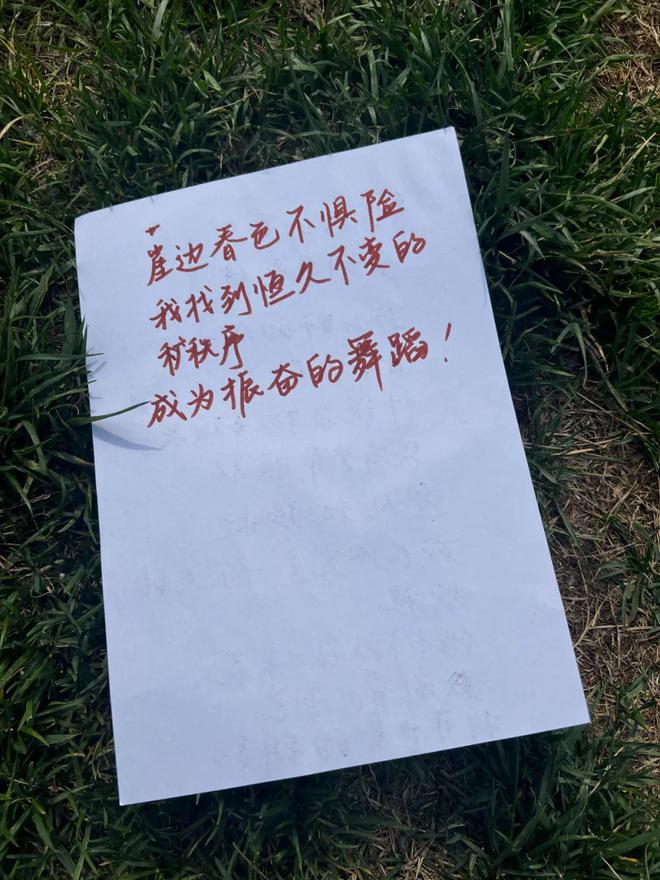 崖边春色不惧险
我找到恒久不变的
秩序
成为振奋的舞蹈！